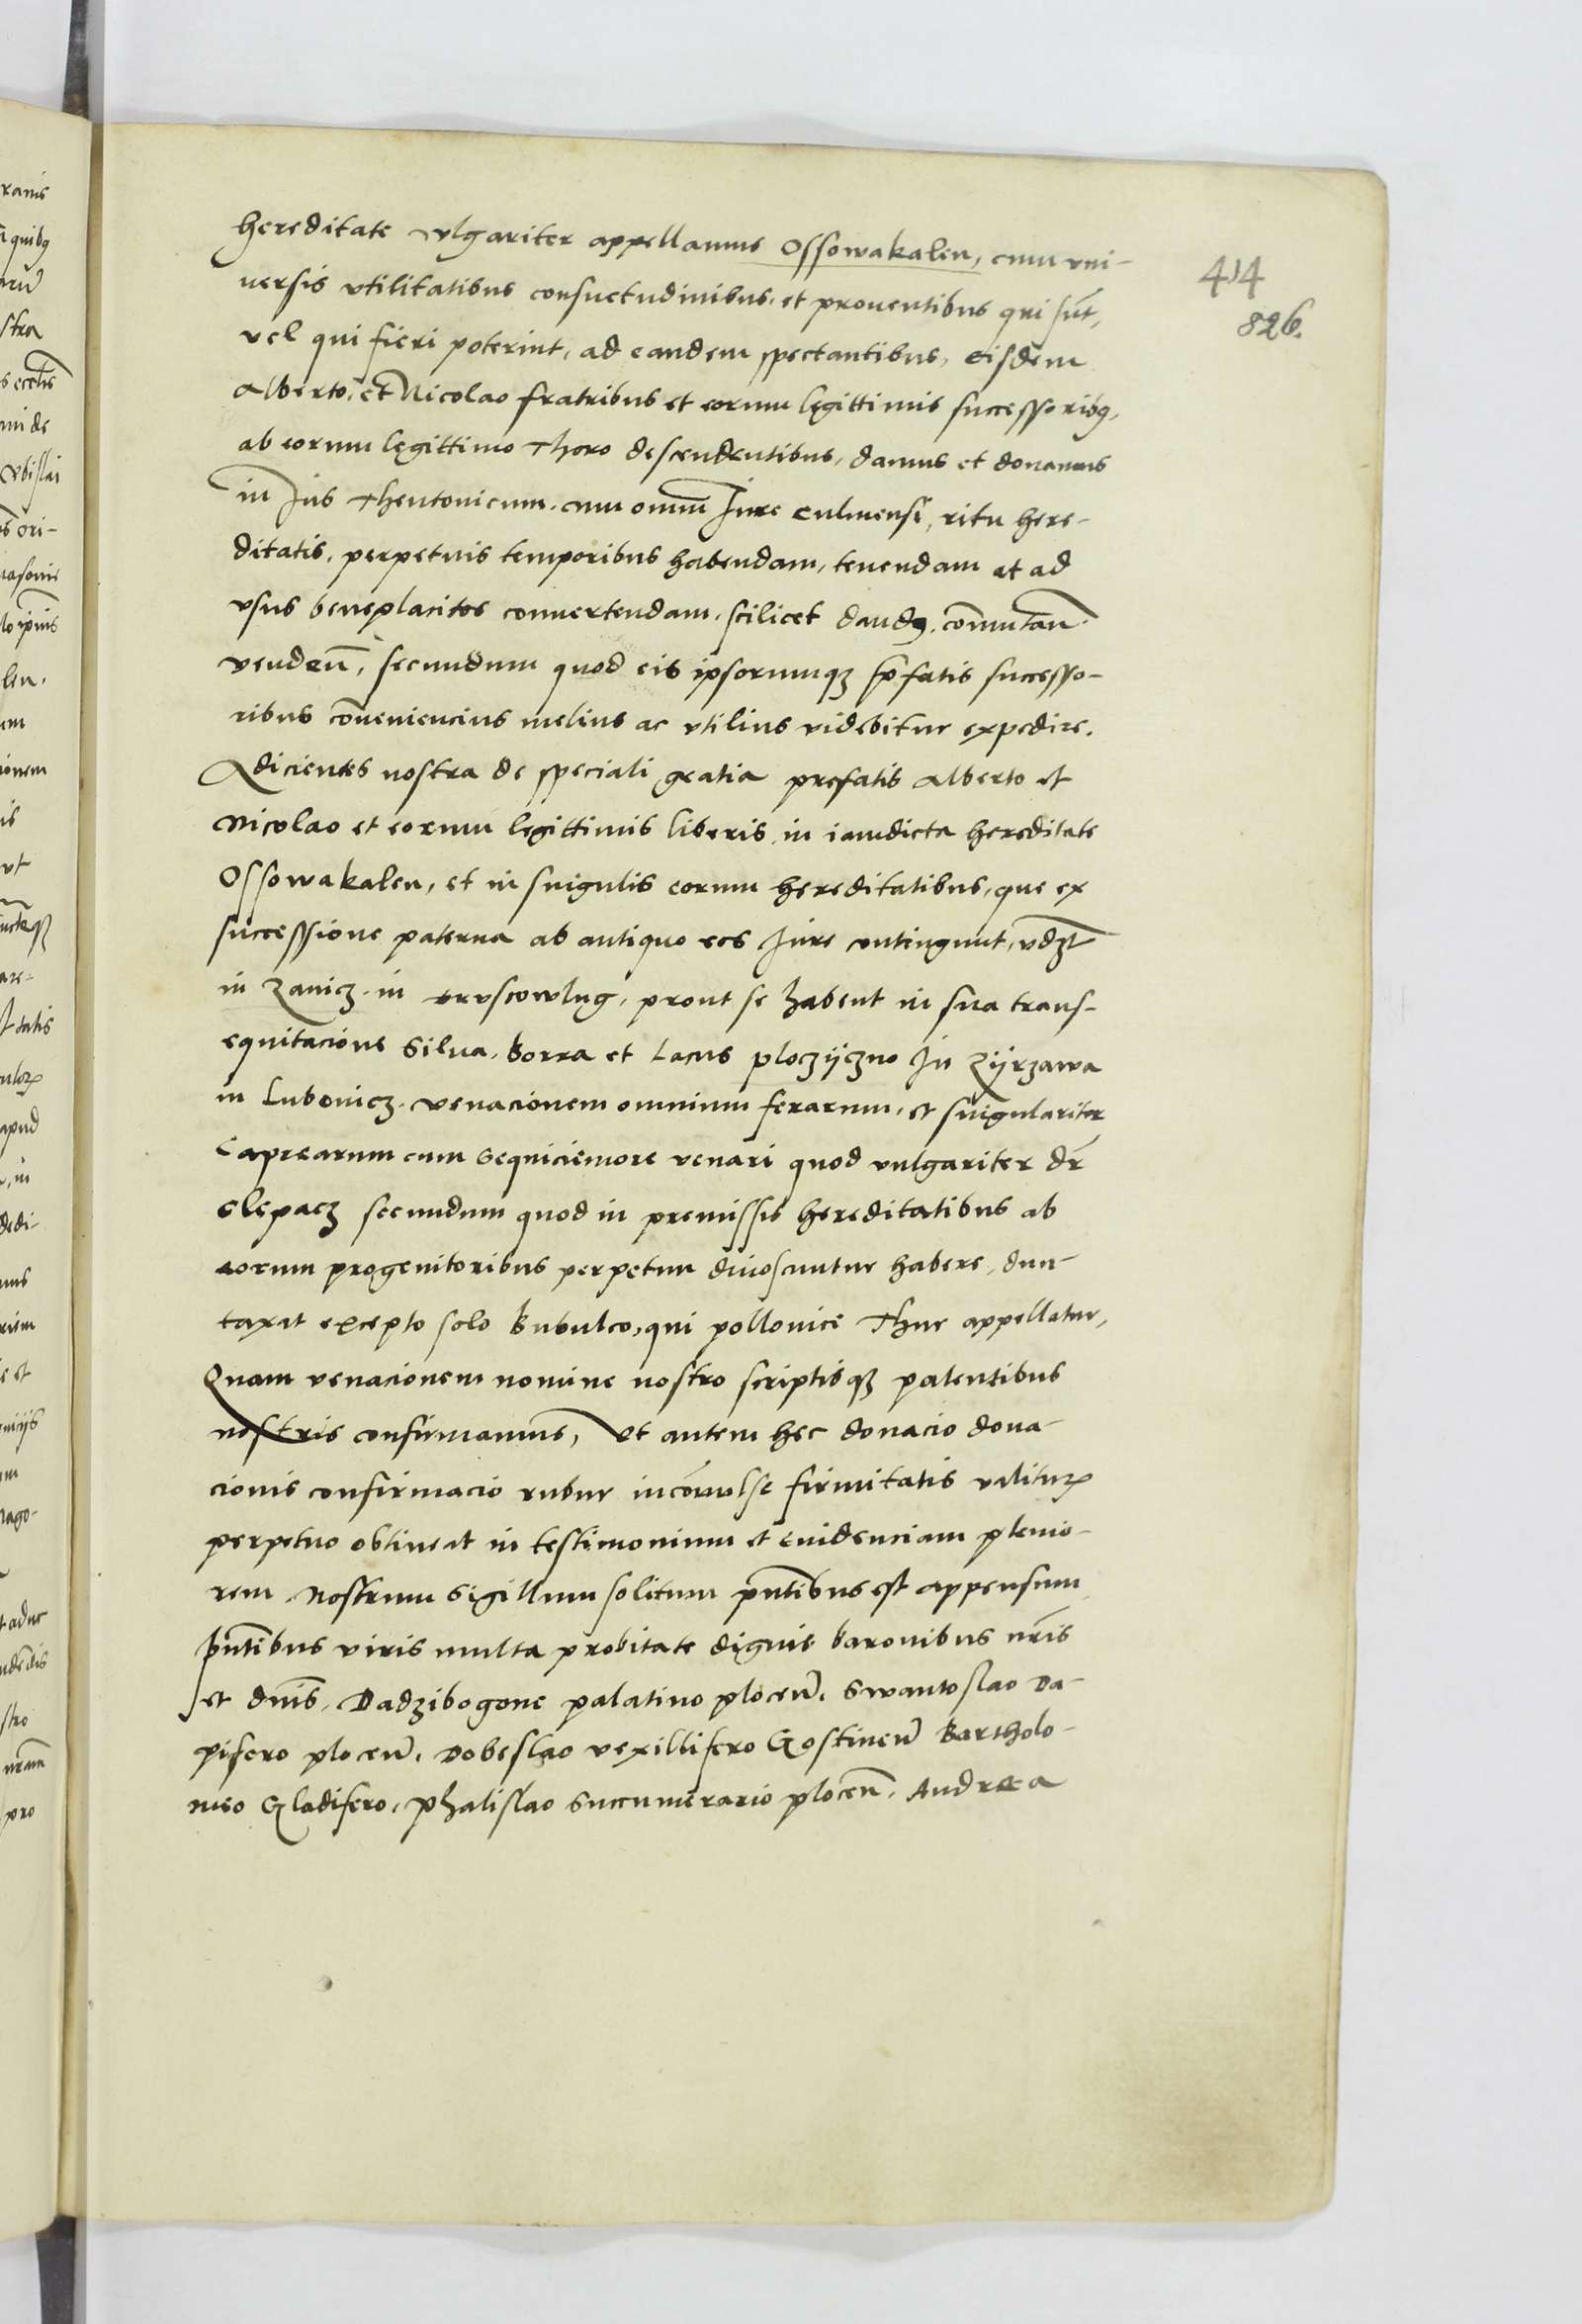 hereditate vlgariter appellamus Ossowakalen, cum vni-
uersis vtilitatibus consuetudinibus, et prouentibus qui sūt,
vel qui fieri poterint, ad eandem spectantibus, eisdem
Alberto, et Nicolao fratribus et eorum legittimis successoribꝫ,
ab eorum legittimo thoro descendentibus, damus et donamus
in Jus Theutonicum, cum omni Jure culmensi, ritu here-
ditatis, perpetuis temporibus habendam, tenendam et ad
vsus beneplacitos conuertendam, scilicet dandꝫ, com̄utan̄
venden̄, secundum quod eis ipsorumqꝫ p̄fatis successo-
ribus cōueniencius melius ac vtilius videbitur expedire.
Adicientes nostra de speciali gratia prefatis Alberto et
Nicolao et eorum legittimis liberis in iamdicta hereditate
Ossowakalen, et in singulis eorum hereditatibus, que ex
successione paterna ab antiquo eos Jure contingunt, vdꝫt
in Zanicz in Truscowlug, prout se habent in sua trans-
equitacione Silua, borra et Lacus ploczijczno in Zijrzawa
in Lubonicz venacionem omnium ferarum, et singulariter
caprearum cum sequiciemore venari quod vulgariter dr̄
clepacz secundum quod in premissis hereditatibus ab
eorum progenitoribus perpetuu dinoscuntur habere, dun-
taxat excepto solo bubulco, qui pollonice Thur appellatur,
Quam venacionem nomine nostro scriptisqꝫ patentibus
nostris confirmamus, Vt autem hec donacio dona-
cionis confirmacio rubur incōuulse firmitatis valiturꝫ
perpetuo obtineat in testimonium et euidenciam plenio-
rem, nostrum sigillum solitum pn̄tibus est appensum
pn̄tibus viris multa probitate dignis baronibus nr̄is
et dn̄is, Dadzibogone palatino plocen̄, Swantoslao Da-
pifero plocen̄, Dobeslao vexillifero Gostinen̄ Bartholo-
meo Gladifero, Phalislao Succumerario plocen̄, Andrea
414
826.